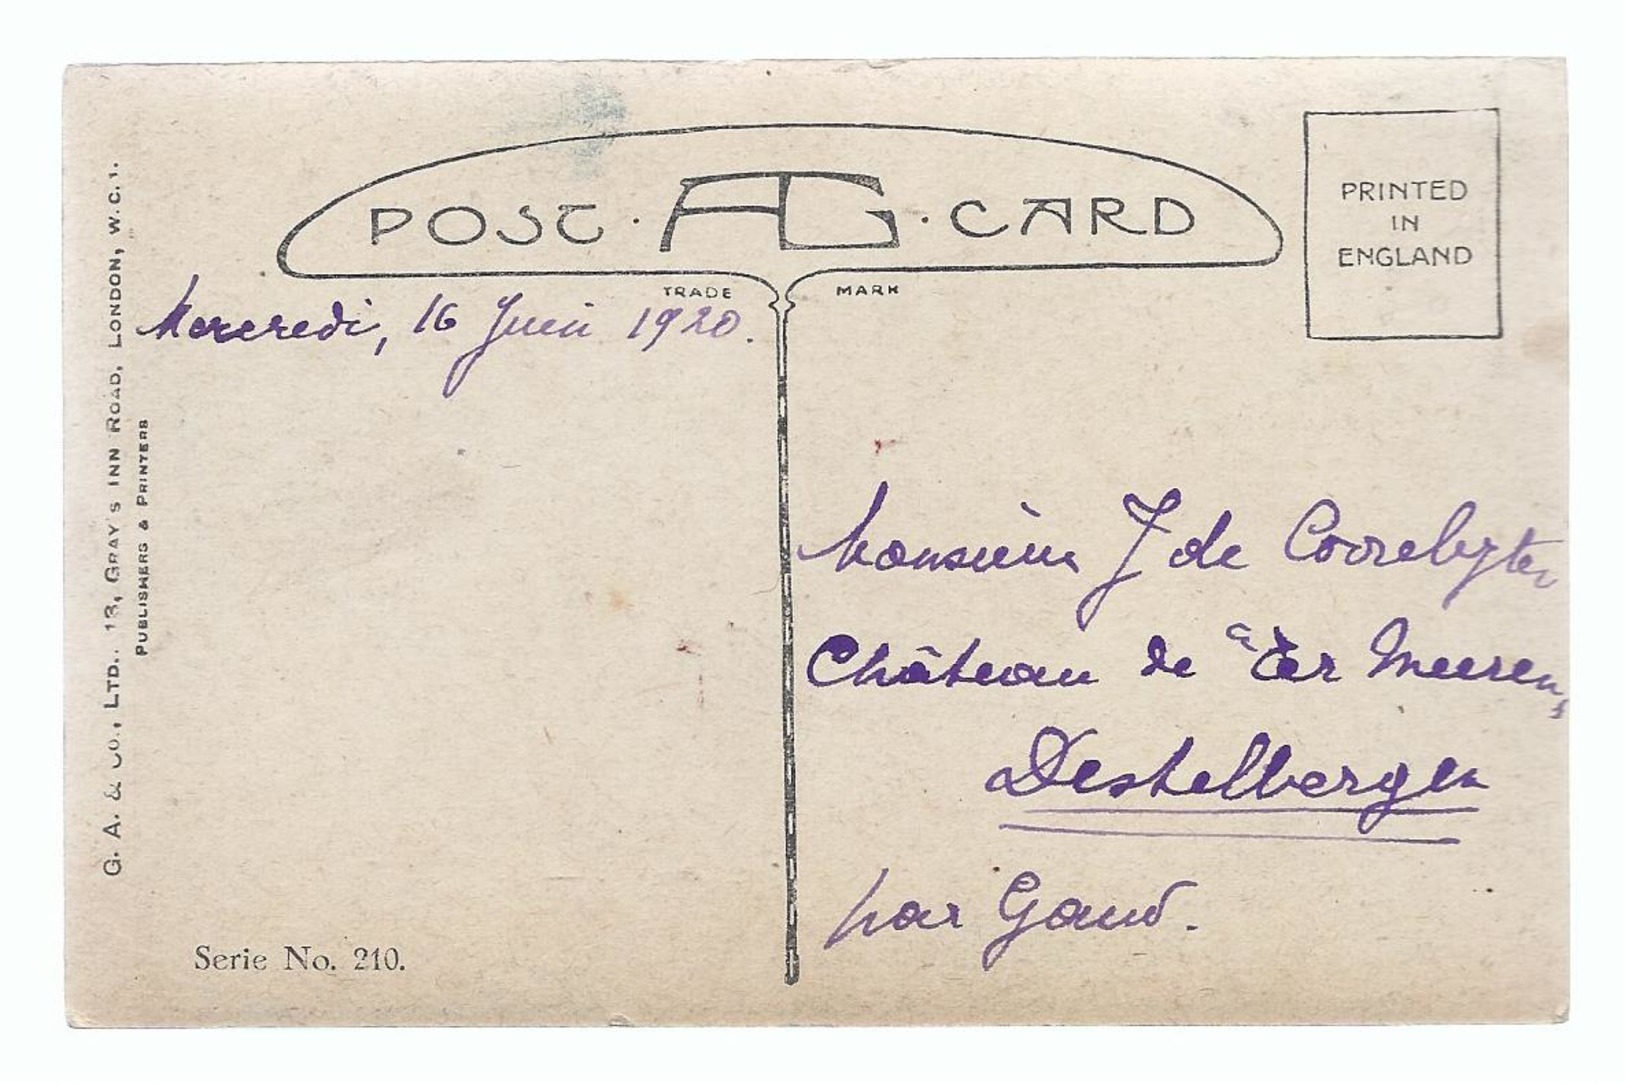 POST · AG · CARD
TRADE MARK
PRINTED
IN
ENGLAND
G. A. & Co., LTD., 13, GRAY'S INN ROAD, LONDON, W.C.1.
PUBLISHERS & PRINTERS
Mercredi, 16 Juin 1920.
Monsieur J de Coorebyter
Château de "Ter Meeren"
Destelbergen
par Gand.
Serie No. 210.